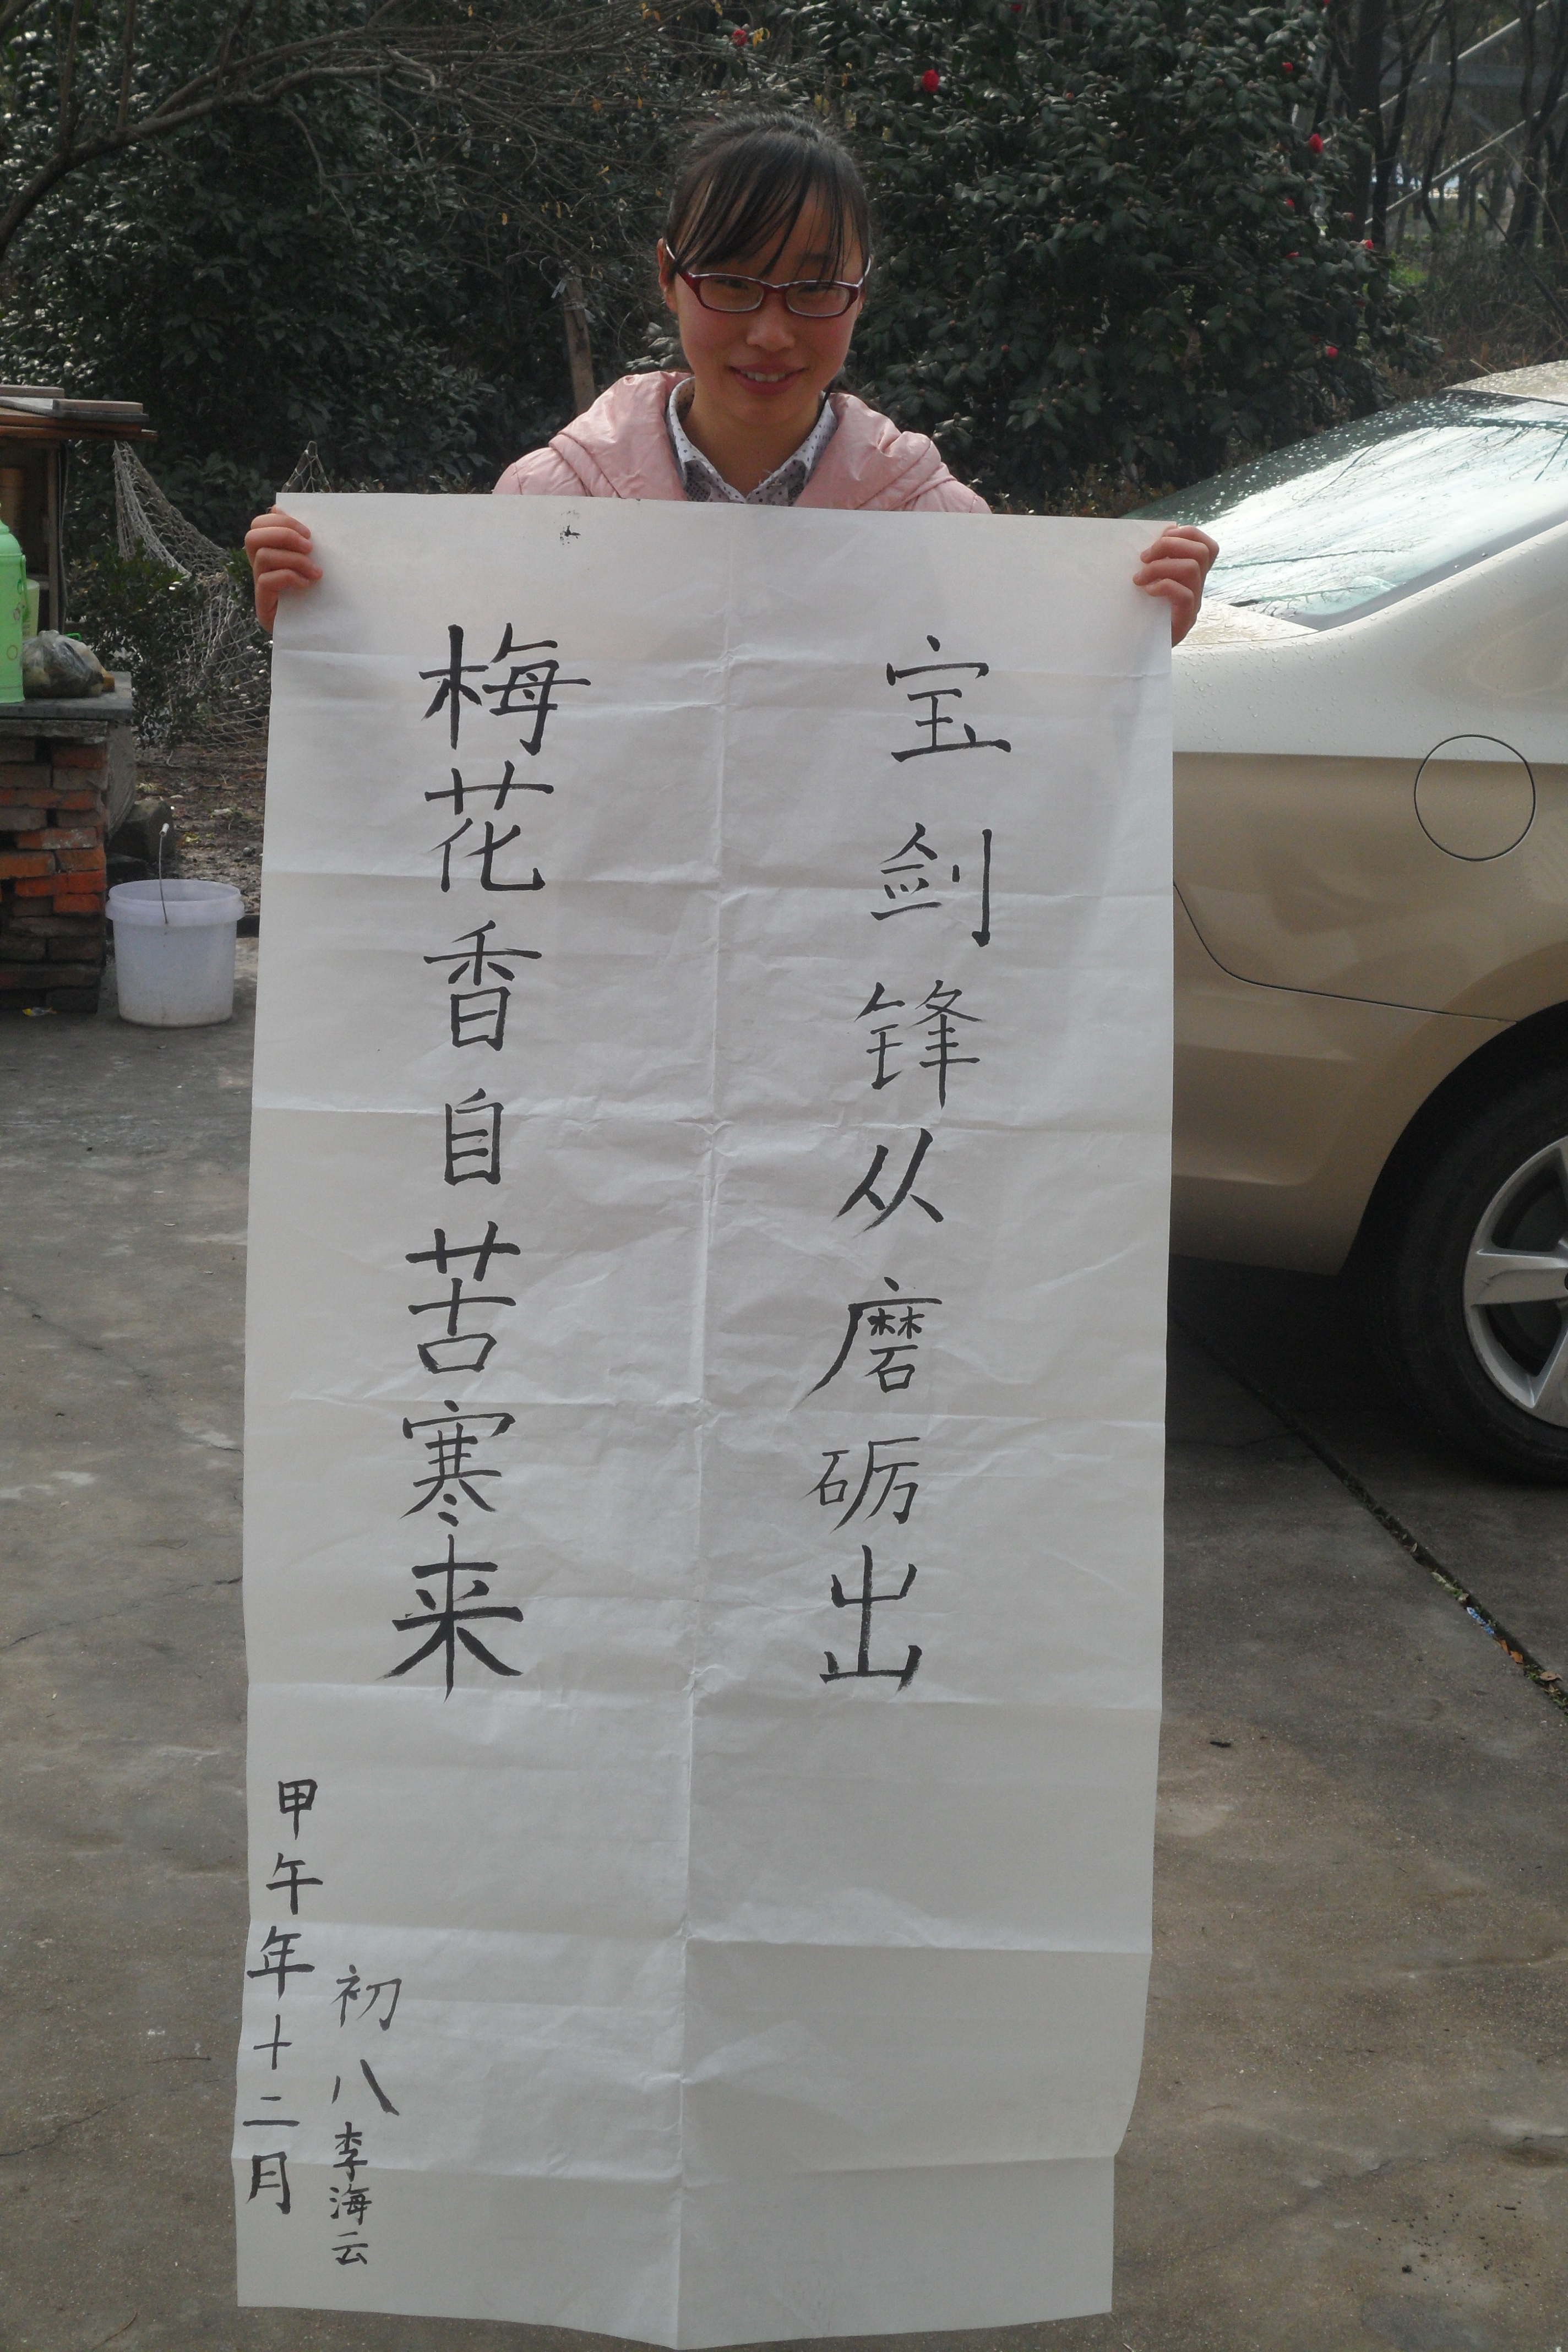 宝剑锋从磨砺出
梅花香自苦寒来
甲午年十二月
初八李海云